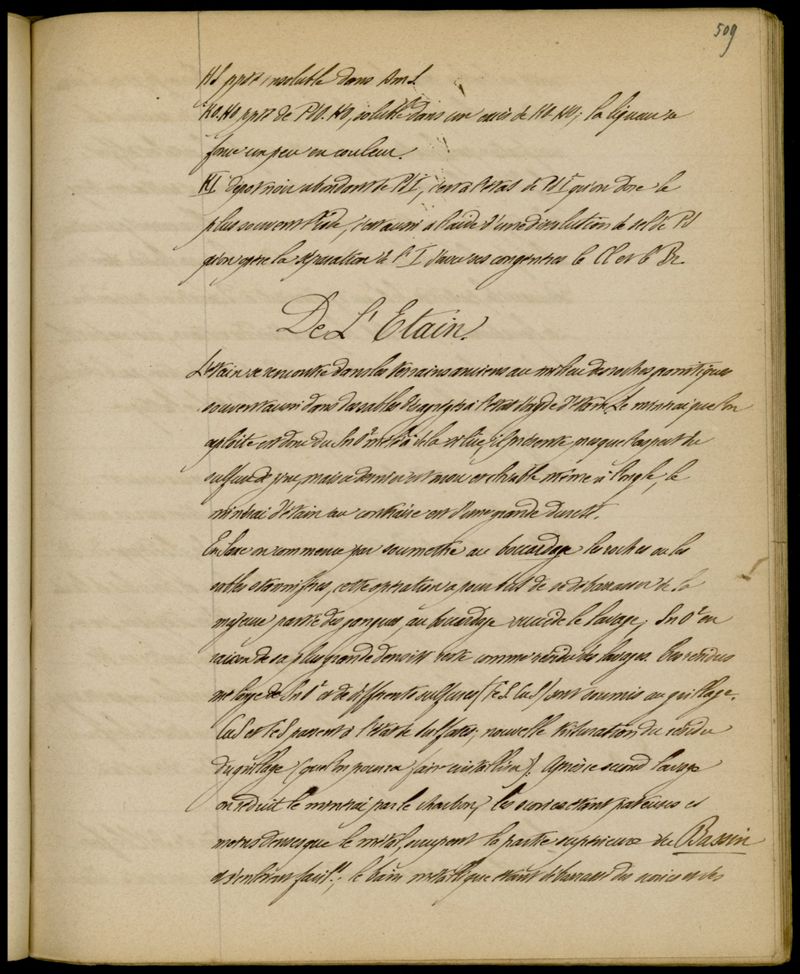 509
HS ppté insoluble dans AmS
KO.HO ppté de PdO.HO, soluble dans un excès de KO.HO; la liqueur se
fonce un peu en couleur.
KI Dépôt noir abondant de PdI, c'est à l'état de PdI qu'on dose le
plus souvent l'iode, c'est aussi à l'aide d'une dissolution de sel de Pd
qu'on opère la séparation de l'I d'avec ses congénères le Cl et le Br.
De L'Etain.
L'étain se rencontre dans les terrains anciens au milieu des roches
souvent aussi dans des sables à l'état d'oxyde d'étain. Le minerai que l'on
exploite est donc du SnO² il présente presque l'aspect du
sulfure de zinc, mais ce dernier est mou et à l'ongle, le
minerai d'étain au contraire est d'une grande dureté.
on commence par soumettre au bocardage les roches ou les
sables stannifères, cette opération a pour but de se débarrasser de la
majeure partie des gangues, au bocardage succède le lavage, SnO² en
raison de sa plus grande densité reste comme résidu des lavages. Ces résidus
mélange de SnO² et de différents sulfures (FeS, CuS) sont soumis au grillage.
CuS et FeS passent à l'état de sulfates, nouvelle trituration du résidu
du grillage (que l'on pourra faire cristalliser). Après ce second lavage
on réduit le minerai par le charbon, les scories étant pâteuses et
moins denses que le métal, occupent la partie supérieure du Bassin
et s'enlèvent facilt; le bain métallique étant débarrassé des scories et des